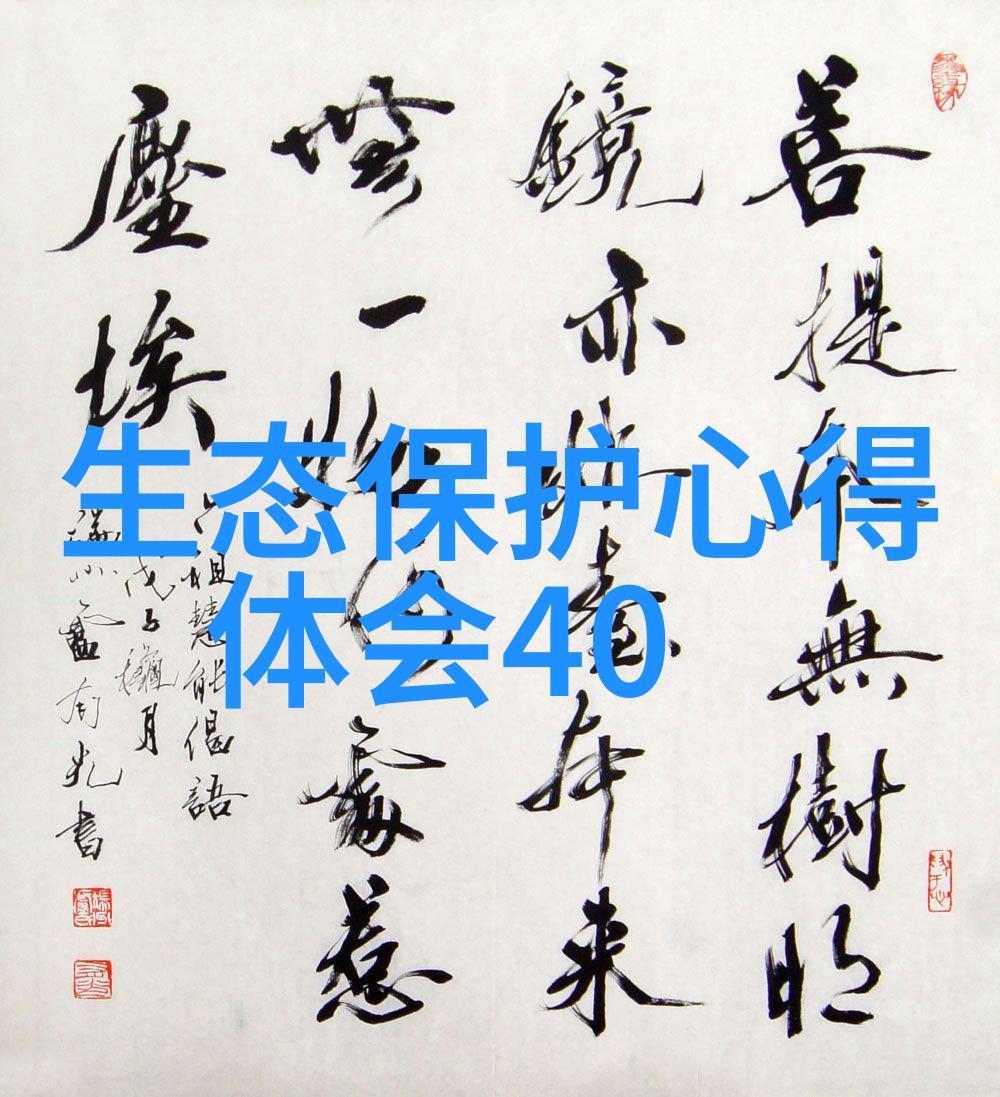 菩提本無樹明
鏡亦非臺本來
無一物何處惹
塵埃
六祖慧能偈語
戊子穐月
盧有光書
生态保护心得
体会40